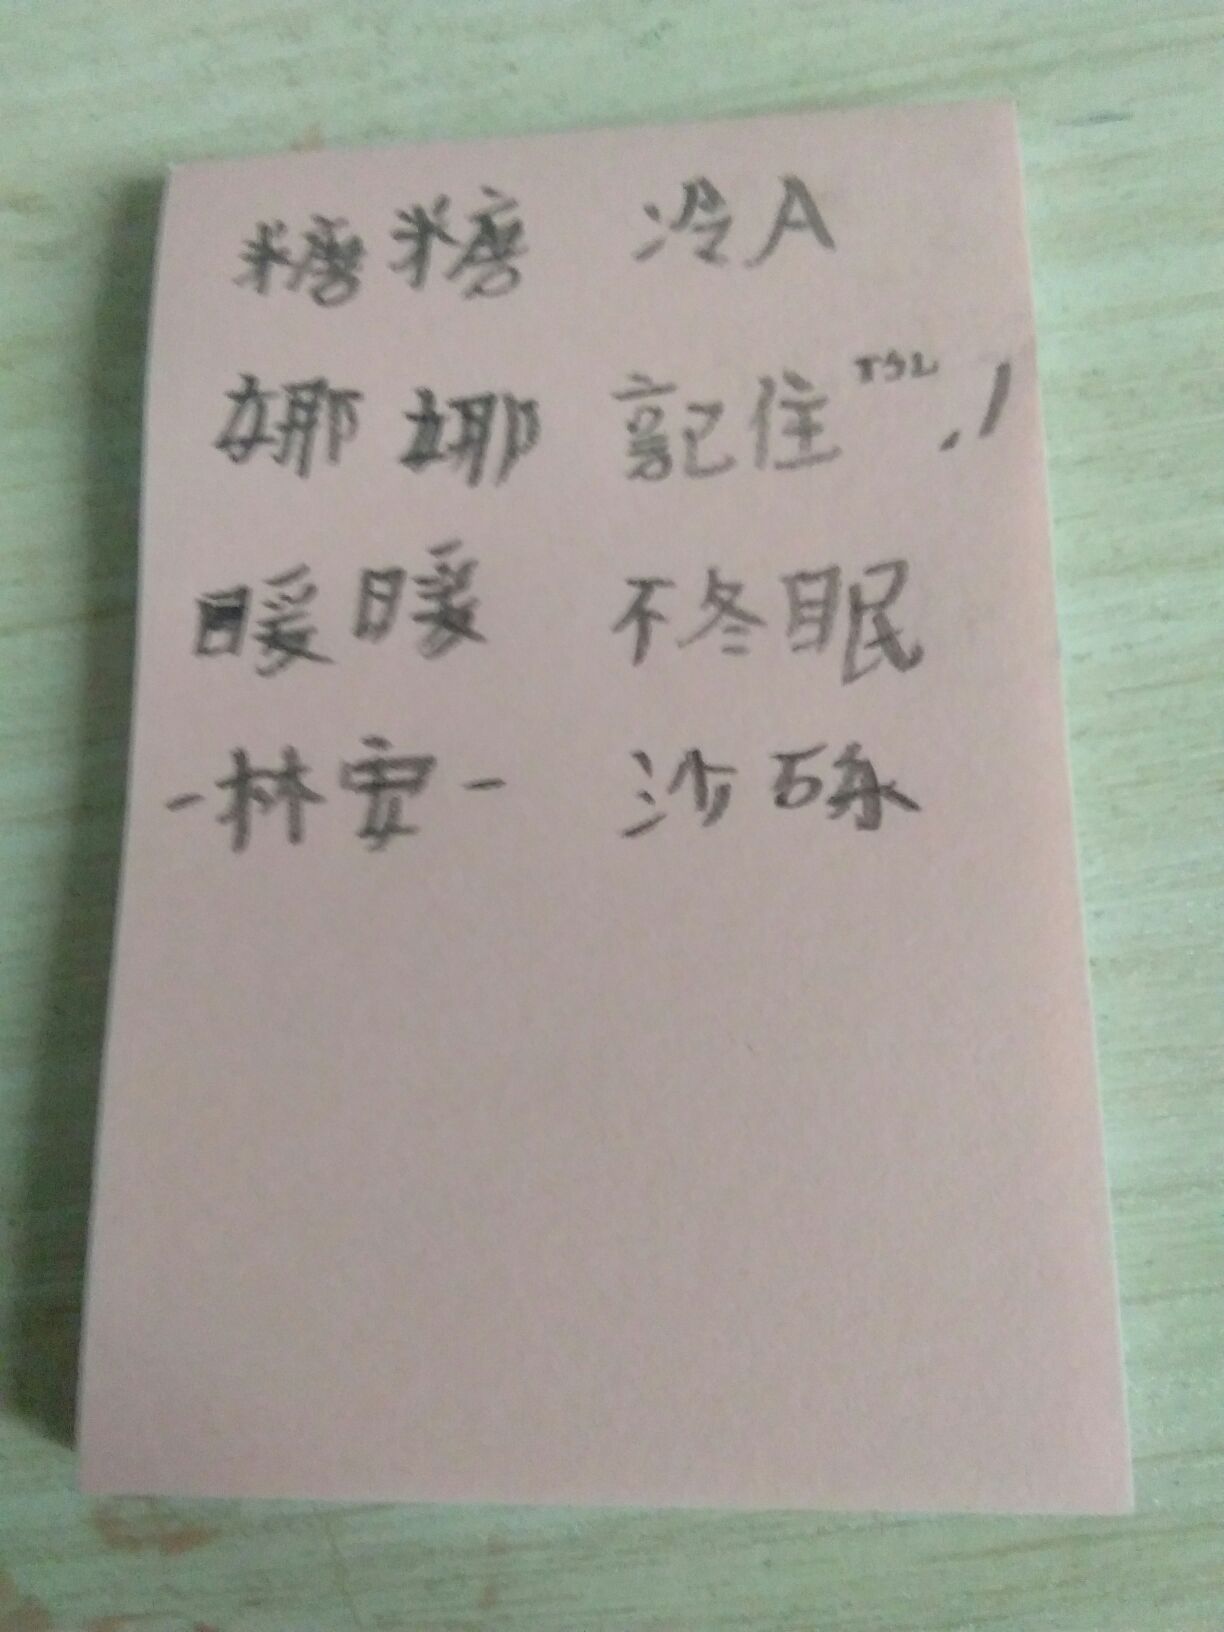 糖糖 冷A
娜娜 記住
暖暖 不冬眠
-林安- 沙砾